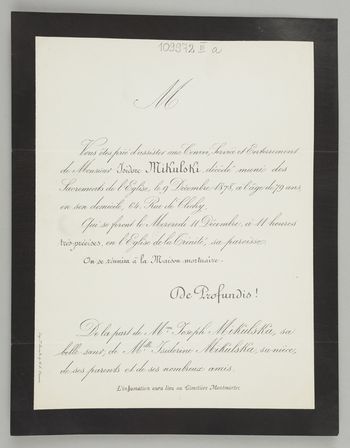 109972 III a
M
Vous êtes prié d'assister aux Convoi, Service et Enterrement
de Monsieur Isidore Mikulski, décédé muni des
Sacrements de l'Eglise, le 9 Décembre 1878, à l'âge de 79 ans
en son domicile, 64, Rue de Clichy,
Qui se feront le Mercredi 11 Décembre, à 11 heures
très-précises, en l'Eglise de la Trinité, sa paroisse.
On se réunira à la Maison mortuaire.
De Profundis!
De la part de Mme Joseph Mikulska, sa
belle sœur, de Mlle Isidorine Mikulska, sa nièce,
de ses parents et de ses nombreux amis.
L'inhumation aura lieu au Cimetière Montmartre